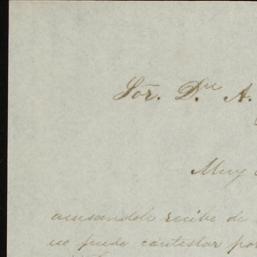 Sōr. D.ⁿ A.
Muy
acusandole recibo de
no puedo contestar por